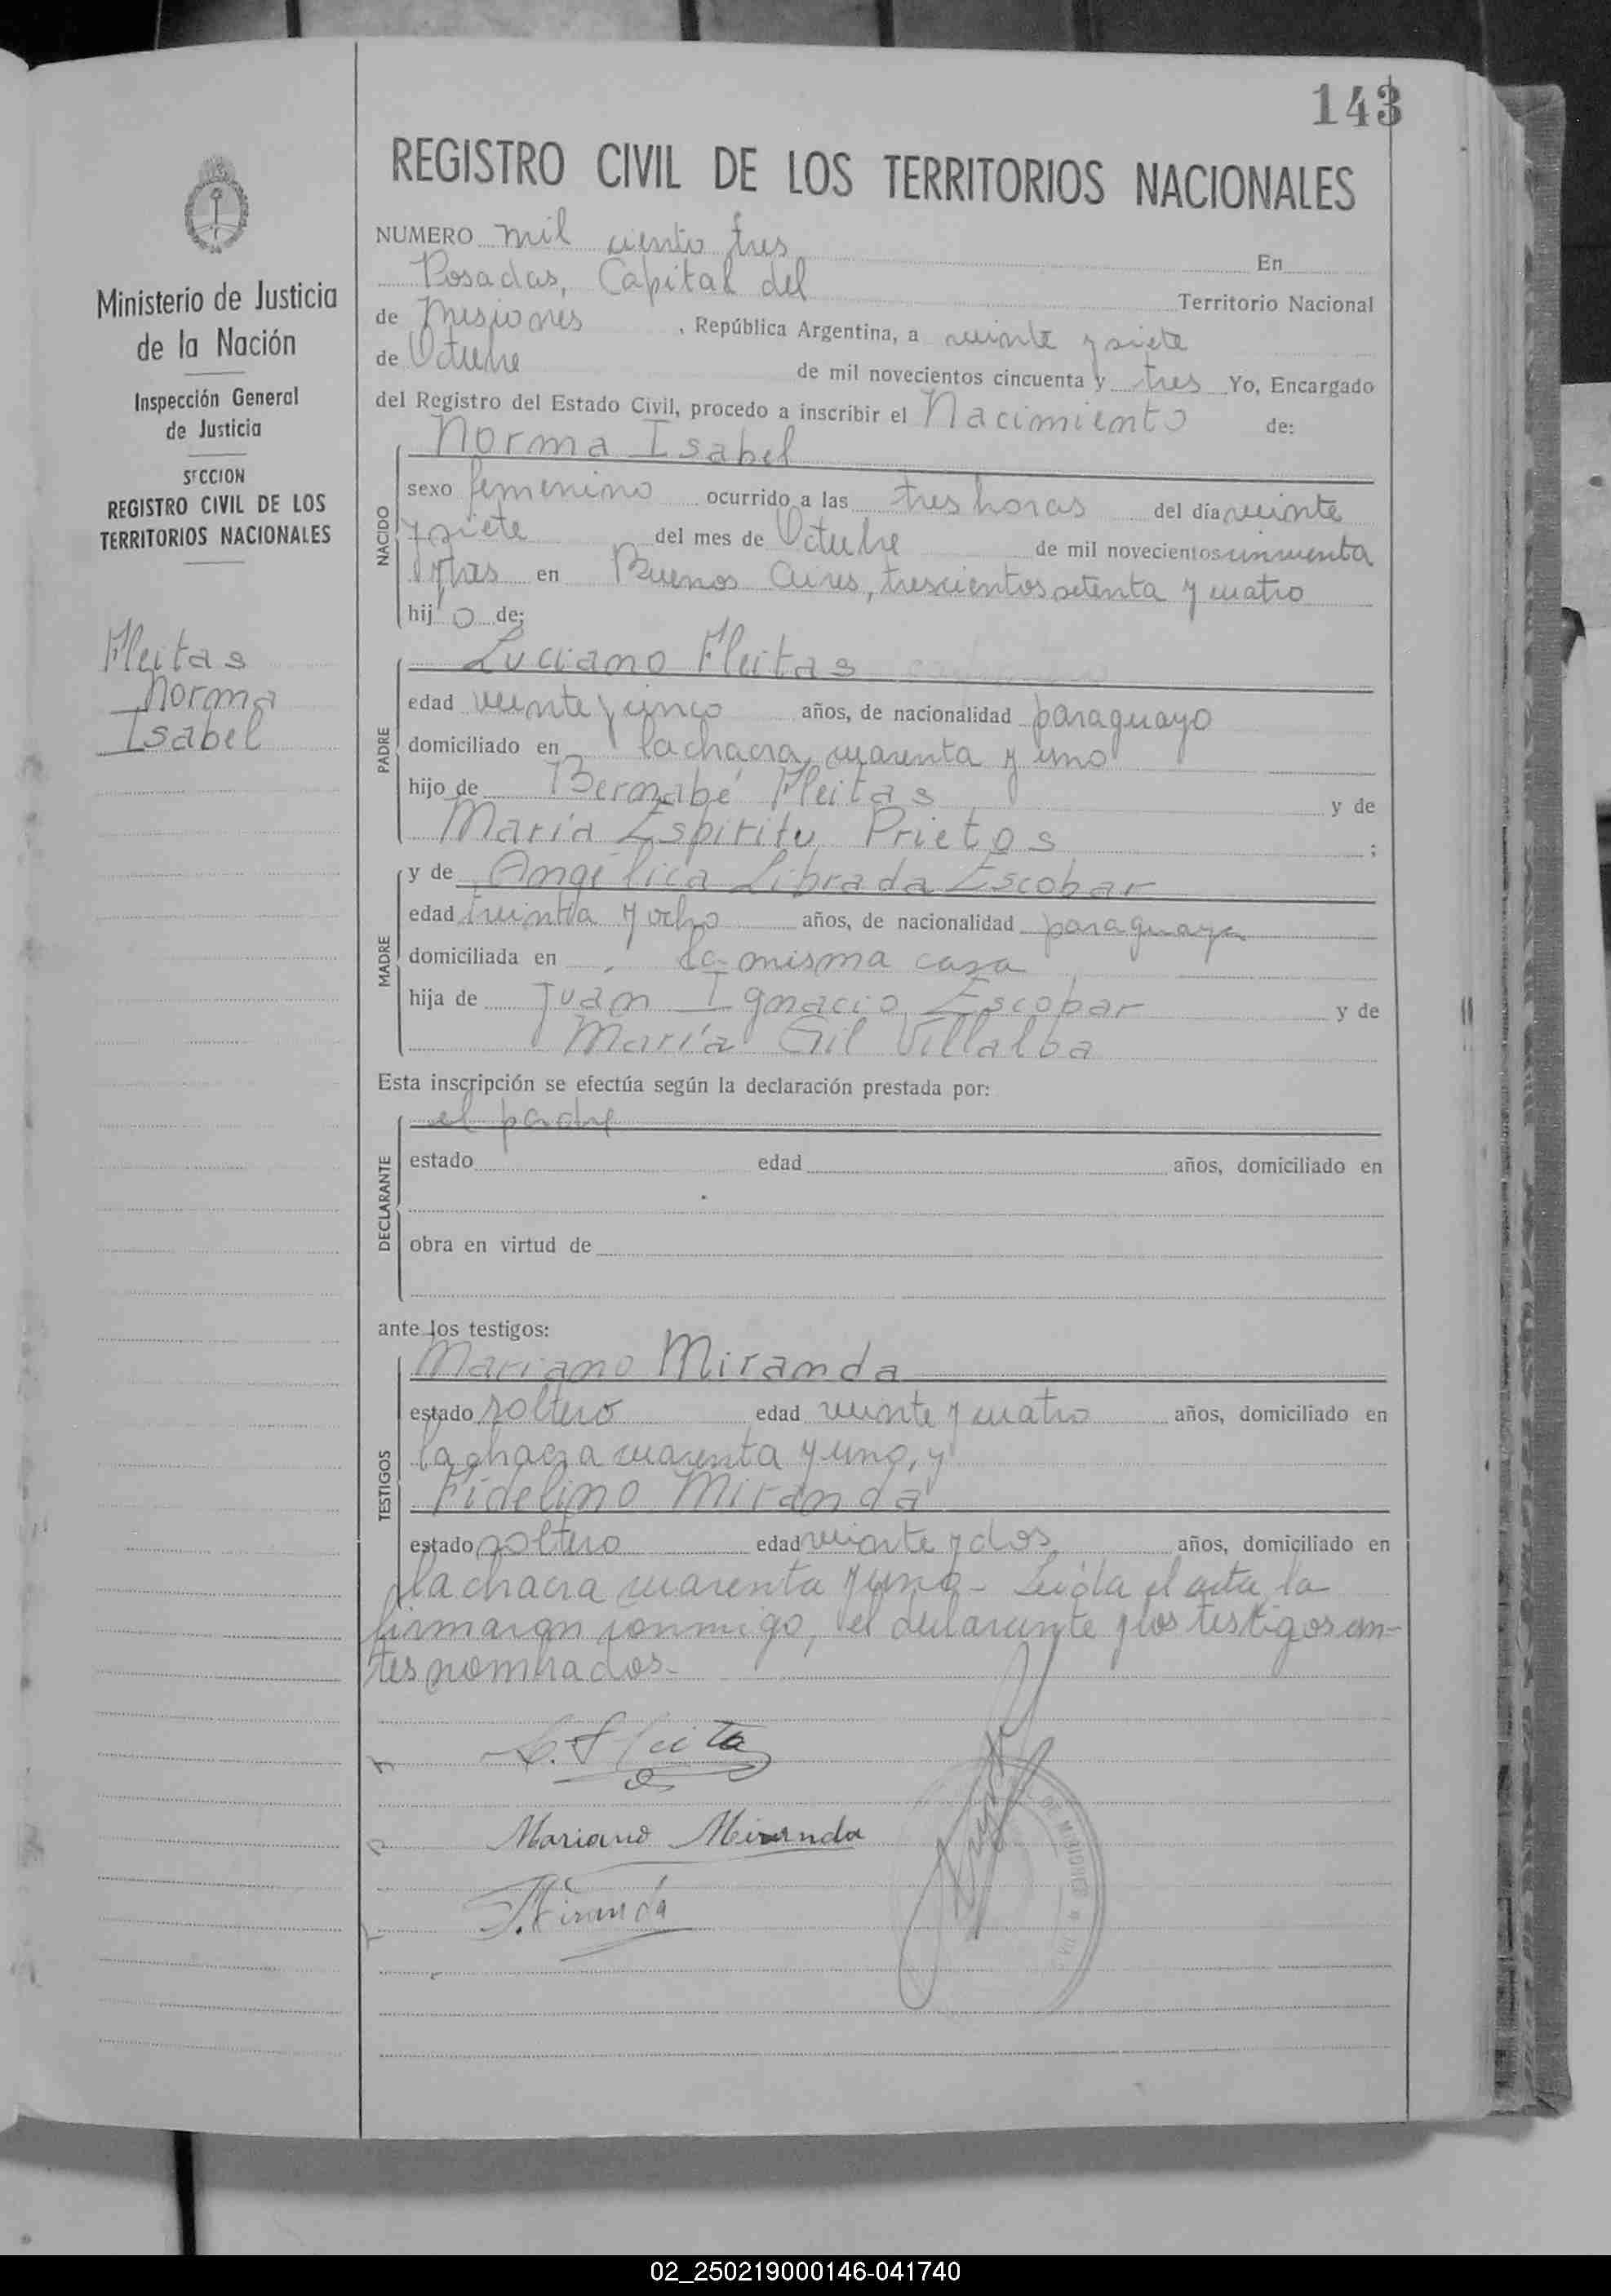 143
REGISTRO CIVIL DE LOS TERRITORIOS NACIONALES
Ministerio de Justicia
de la Nación
Inspección General
de Justicia
SECCION
REGISTRO CIVIL DE LOS
TERRITORIOS NACIONALES
Fleitas
Norma
Isabel
NUMERO mil ciento tres En
Posadas, Capital del Territorio Nacional
de Misiones, República Argentina, a veinte y siete
de Octubre de mil novecientos cincuenta y tres Yo, Encargado
del Registro del Estado Civil, procedo a inscribir el Nacimiento de:
NACIDO
Norma Isabel
sexo femenino ocurrido a las tres horas del día veinte
y siete del mes de Octubre de mil novecientos cincuenta
y tres en Buenos Aires, trescientos setenta y cuatro
hij o de:
PADRE
Luciano Fleitas
edad veinte y cinco años, de nacionalidad paraguayo
domiciliado en la chacra cuarenta y uno
hijo de Bernabé Fleitas y de
María Espíritu Prietos ;
MADRE
y de Angélica Librada Escobar
edad treinta y ocho años, de nacionalidad paraguaya
domiciliada en la misma casa
hija de Juan Ignacio Escobar y de
María Gil Villalba
Esta inscripción se efectúa según la declaración prestada por:
DECLARANTE
el padre
estado edad años, domiciliado en
obra en virtud de
ante los testigos:
TESTIGOS
Mariano Miranda
estado soltero edad veinte y cuatro años, domiciliado en
la chacra cuarenta y uno, y
Fidelino Miranda
estado soltero edad veinte y dos años, domiciliado en
la chacra cuarenta y uno - Leída el acta, la
firmaron conmigo, el declarante y los testigos an-
tes nombrados.-
L. Fleita
Mariano Miranda
F. Miranda
02_250219000146-041740